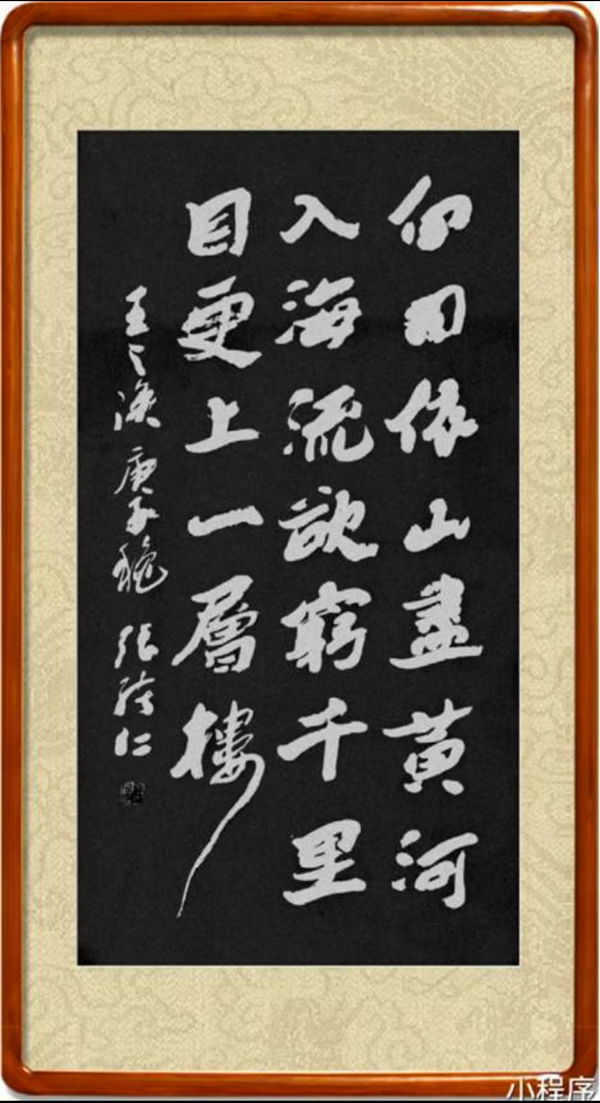 白日依山盡黄河
入海流欲窮千里
目更上一層樓
王之渙 庚子秋 張結仁
小程序